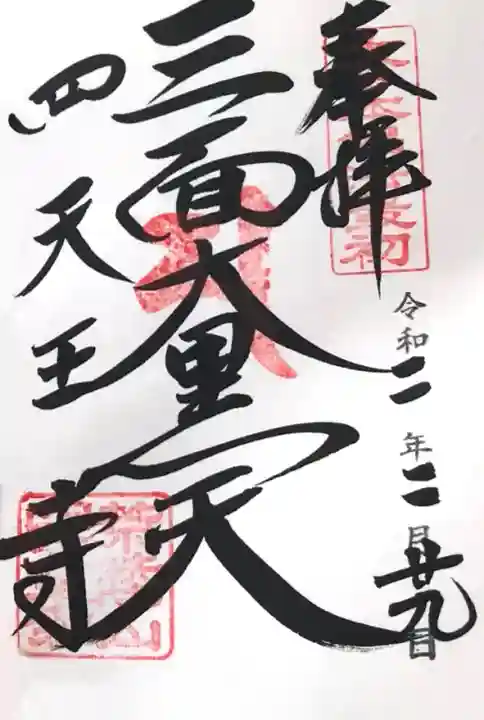 奉拝
令和二年二月廿九日
三面大黒天
四天王寺